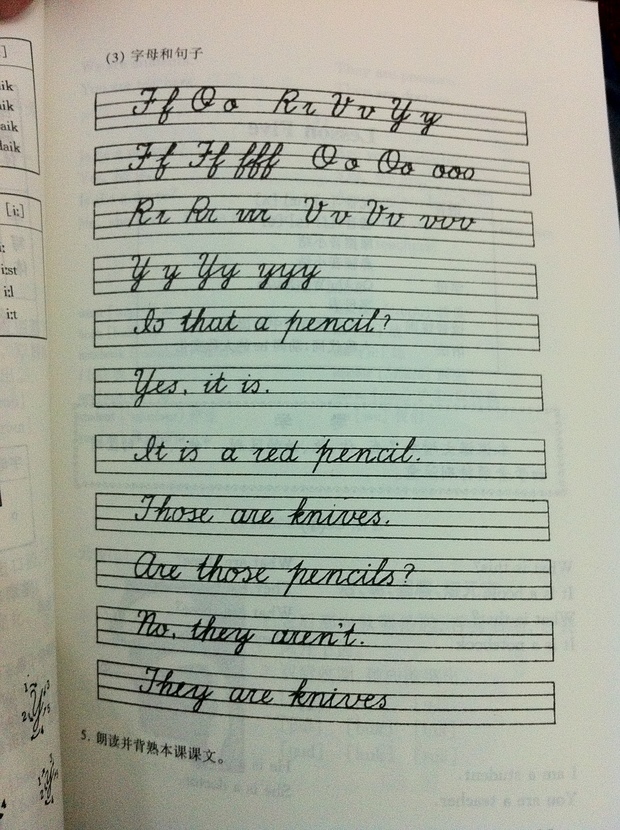 (3) 字母和句子
Ff Oo Rr Vv Yy
Ff Ff fff Oo Oo ooo
Rr Rr rrr Vv Vv vvv
Yy Yy yyy
Is that a pencil?
Yes, it is.
It is a red pencil.
Those are knives.
Are those pencils?
No, they aren't.
They are knives
5. 朗读并背熟本课课文。
aik
[i:]
i:st
i:l
i:t